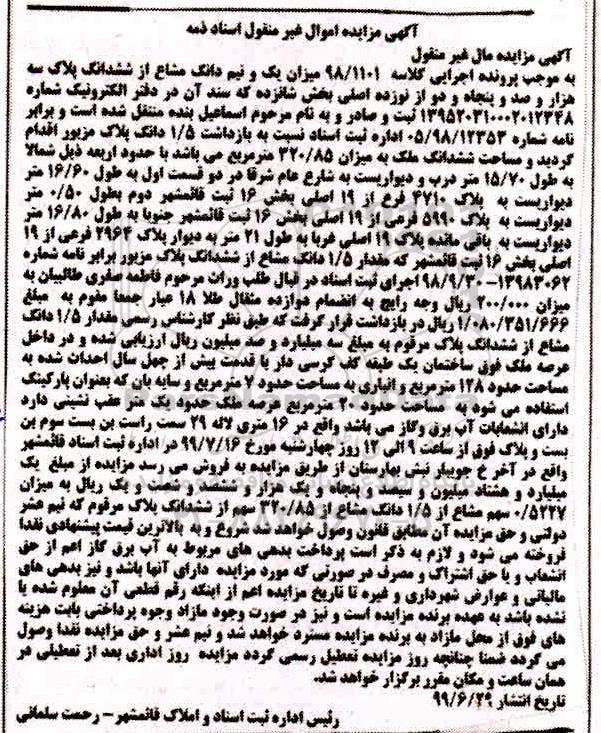 آگهی مزایده اموال غیر منقول اسناد ذمه
آگهی مزایده مال غیر منقول
به موجب پرونده اجرایی کلاسه ۹۸/۱۱۰۱ میزان یک و نیم دانگ مشاع از ششدانگ پلاک سه
هزار و صد و پنجاه و دو از نوزده اصلی بخش شانزده که سند آن در دفتر الکترونیک شماره
۱۳۹۵۲۰۳۱۰۰۰۲۰۱۲۳۴۸ ثبت و صادر و به نام مرحوم اسماعیل بنده منتقل شده است و برابر
نامه شماره ۰۵/۹۸/۱۲۳۵۳ اداره ثبت اسناد نسبت به بازداشت ۱/۵ دانگ پلاک مزبور اقدام
گردید و مساحت ششدانگ ملک به میزان ۳۲۰/۸۵ مترمربع می باشد با حدود اربعه ذیل شمالا
به طول ۱۵/۷۰ متر درب و دیواریست به شارع عام شرقا در دو قسمت اول به طول ۱۶/۶۰ متر
دیواریست به پلاک ۴۷۱۰ فرع از ۱۹ اصلی بخش ۱۶ ثبت قائمشهر دوم بطول ۰/۵۰ متر
دیواریست به پلاک ۵۹۹۰ فرعی از ۱۹ اصلی بخش ۱۶ ثبت قائمشهر جنوبا به طول ۱۶/۸۰ متر
دیواریست به باقی مانده پلاک ۱۹ اصلی غربا به طول ۲۱ متر به دیوار پلاک ۲۹۶۴ فرعی از ۱۹
اصلی بخش ۱۶ ثبت قائمشهر که مقدار ۱/۵ دانگ مشاع از ششدانگ پلاک مزبور برابر نامه شماره
۱۳۹۸۳۰۶۲-۹۸/۹/۳۰ اجرای ثبت اسناد در قبال طلب وراث مرحوم فاطمه صغری طالبیان به
میزان ۲۰۰/۰۰۰ ریال وجه رایج به انضمام دوازده مثقال طلا ۱۸ عیار جمعا مقوم به مبلغ
۱/۰۸۰/۳۵۱/۶۶۶ ریال در بازداشت قرار گرفت که طبق نظر کارشناس رسمی مقدار ۱/۵ دانگ
مشاع از ششدانگ پلاک مرقوم به مبلغ سه میلیارد و صد میلیون ریال ارزیابی شده و در داخل
عرصه ملک فوق ساختمان یک طبقه کف کرسی دار با قدمت بیش از چهل سال احداث شده به
مساحت حدود ۱۲۸ مترمربع و انباری به مساحت حدود ۷ مترمربع و سایه بان که بعنوان پارکینگ
استفاده می شود به مساحت حدود ۲۰ مترمربع عرصه ملک حدود یک متر عقب نشینی دارد
دارای انشعابات آب برق وگاز می باشد واقع در ۱۶ متری لاله ۲۹ سمت راست بن بست سوم بن
بست و پلاک فوق از ساعت ۹ الی ۱۲ روز چهارشنبه مورخ ۹۹/۷/۱۶ در اداره ثبت اسناد قائمشهر
واقع در آخر خ جویبار نبش بهارستان از طریق مزایده به فروش می رسد مزایده از مبلغ یک
میلیارد و هشتاد میلیون و سیصد و پنجاه و یک هزار و ششصد و شصت و یک ریال به میزان
۰/۵۲۲۷ سهم مشاع از ۱/۵ دانگ مشاع از ۳۲۰/۸۵ سهم از ششدانگ پلاک مرقوم که نیم عشر
دولتی و حق مزایده آن مطابق قانون وصول خواهد شد شروع و به بالاترین قیمت پیشنهادی نقدا
فروخته می شود و لازم به ذکر است پرداخت بدهی های مربوط به آب برق گاز اعم از حق
انشعاب و یا حق اشتراک و مصرف در صورتی که مورد مزایده دارای آنها باشد و نیز بدهی های
مالیاتی و عوارض شهرداری و غیره تا تاریخ مزایده اعم از اینکه رقم قطعی آن معلوم شده یا
نشده باشد به عهده برنده مزایده است و نیز در صورت وجود مازاد وجوه پرداختی بابت هزینه
های فوق از محل مازاد به برنده مزایده مسترد خواهد شد و نیم عشر و حق مزایده نقدا وصول
می گردد ضمنا چنانچه روز مزایده تعطیل رسمی گردد مزایده روز اداری بعد از تعطیلی در
همان ساعت و مکان مقرر برگزار خواهد شد.
تاریخ انتشار ۹۹/۶/۲۹
رئیس اداره ثبت اسناد و املاک قائمشهر- رحمت سلمانی